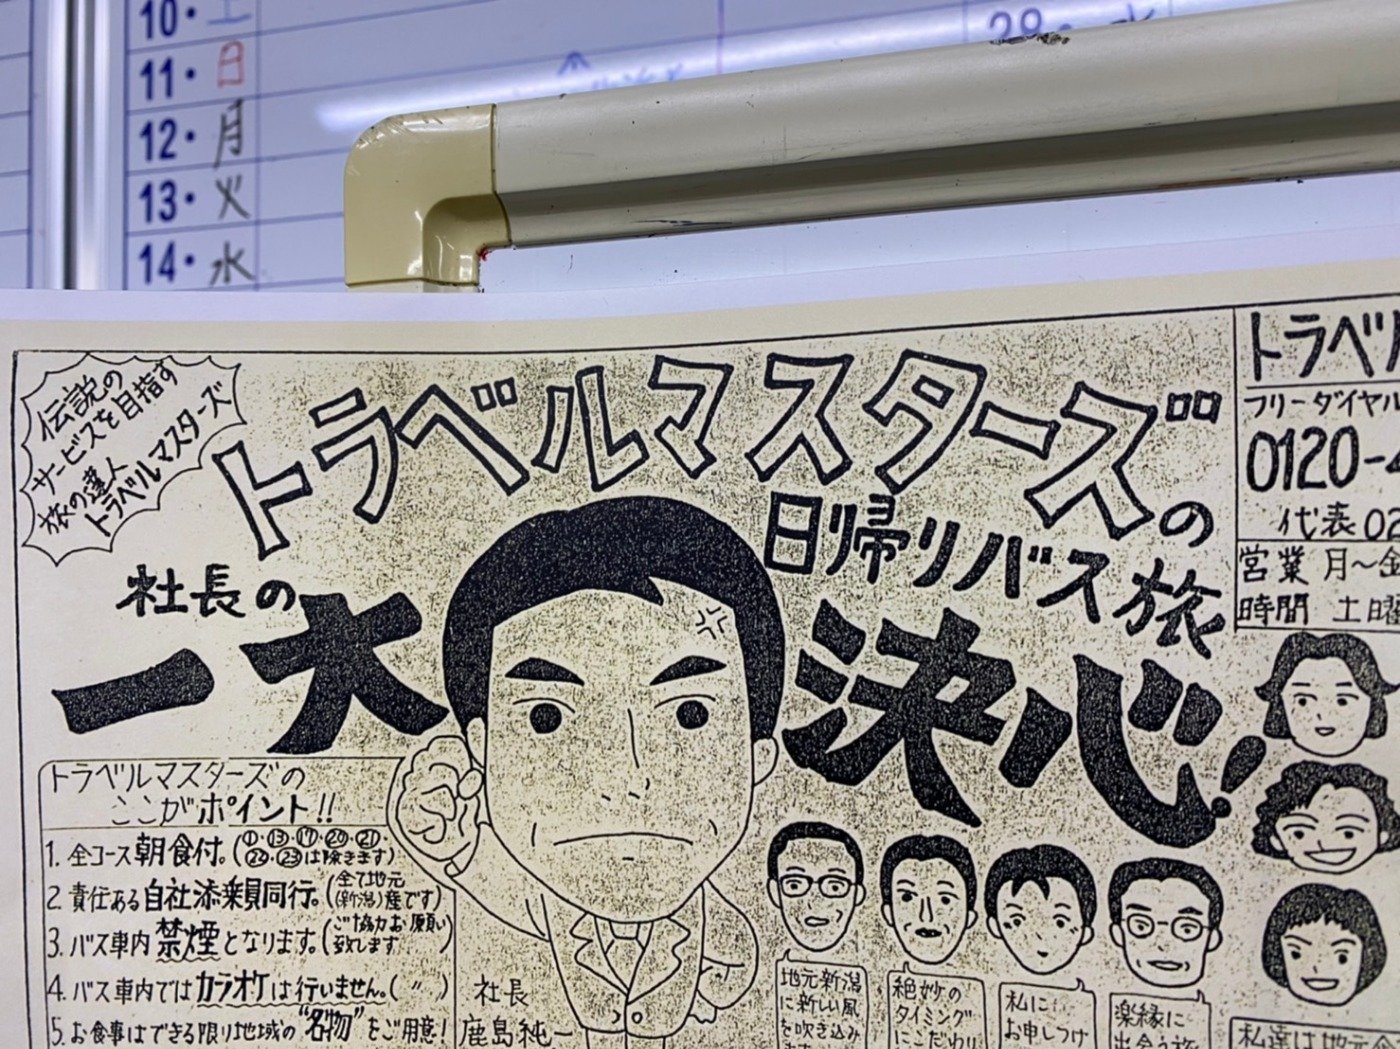 10・土
11・日
12・月
13・火
14・水
29・水
伝説の
サービスを目指す
旅の達人
トラベルマスターズ
トラベルマスターズの
日帰りバス旅
社長の
一大決心!
トラベルマスターズの
ここがポイント!!
1. 全コース朝食付。(①・⑬・⑰・⑳・㉑・㉒・㉓は除きます)
2. 責任ある自社添乗員同行。(全て地元(新潟)産です)
3. バス車内禁煙となります。(ご協力お願い致します)
4. バス車内ではカラオケは行いません。(〃)
5. お食事はできる限り地域の"名物"をご用意!
社長
鹿島純一
地元新潟
に新しい風
を吹き込み
絶妙の
タイミング
にこだわり
私に
お申しつけ
楽縁に
出会う旅
トラベル
フリーダイヤル
0120-4
代表 02
営業 月〜金
時間 土曜
私達は地元